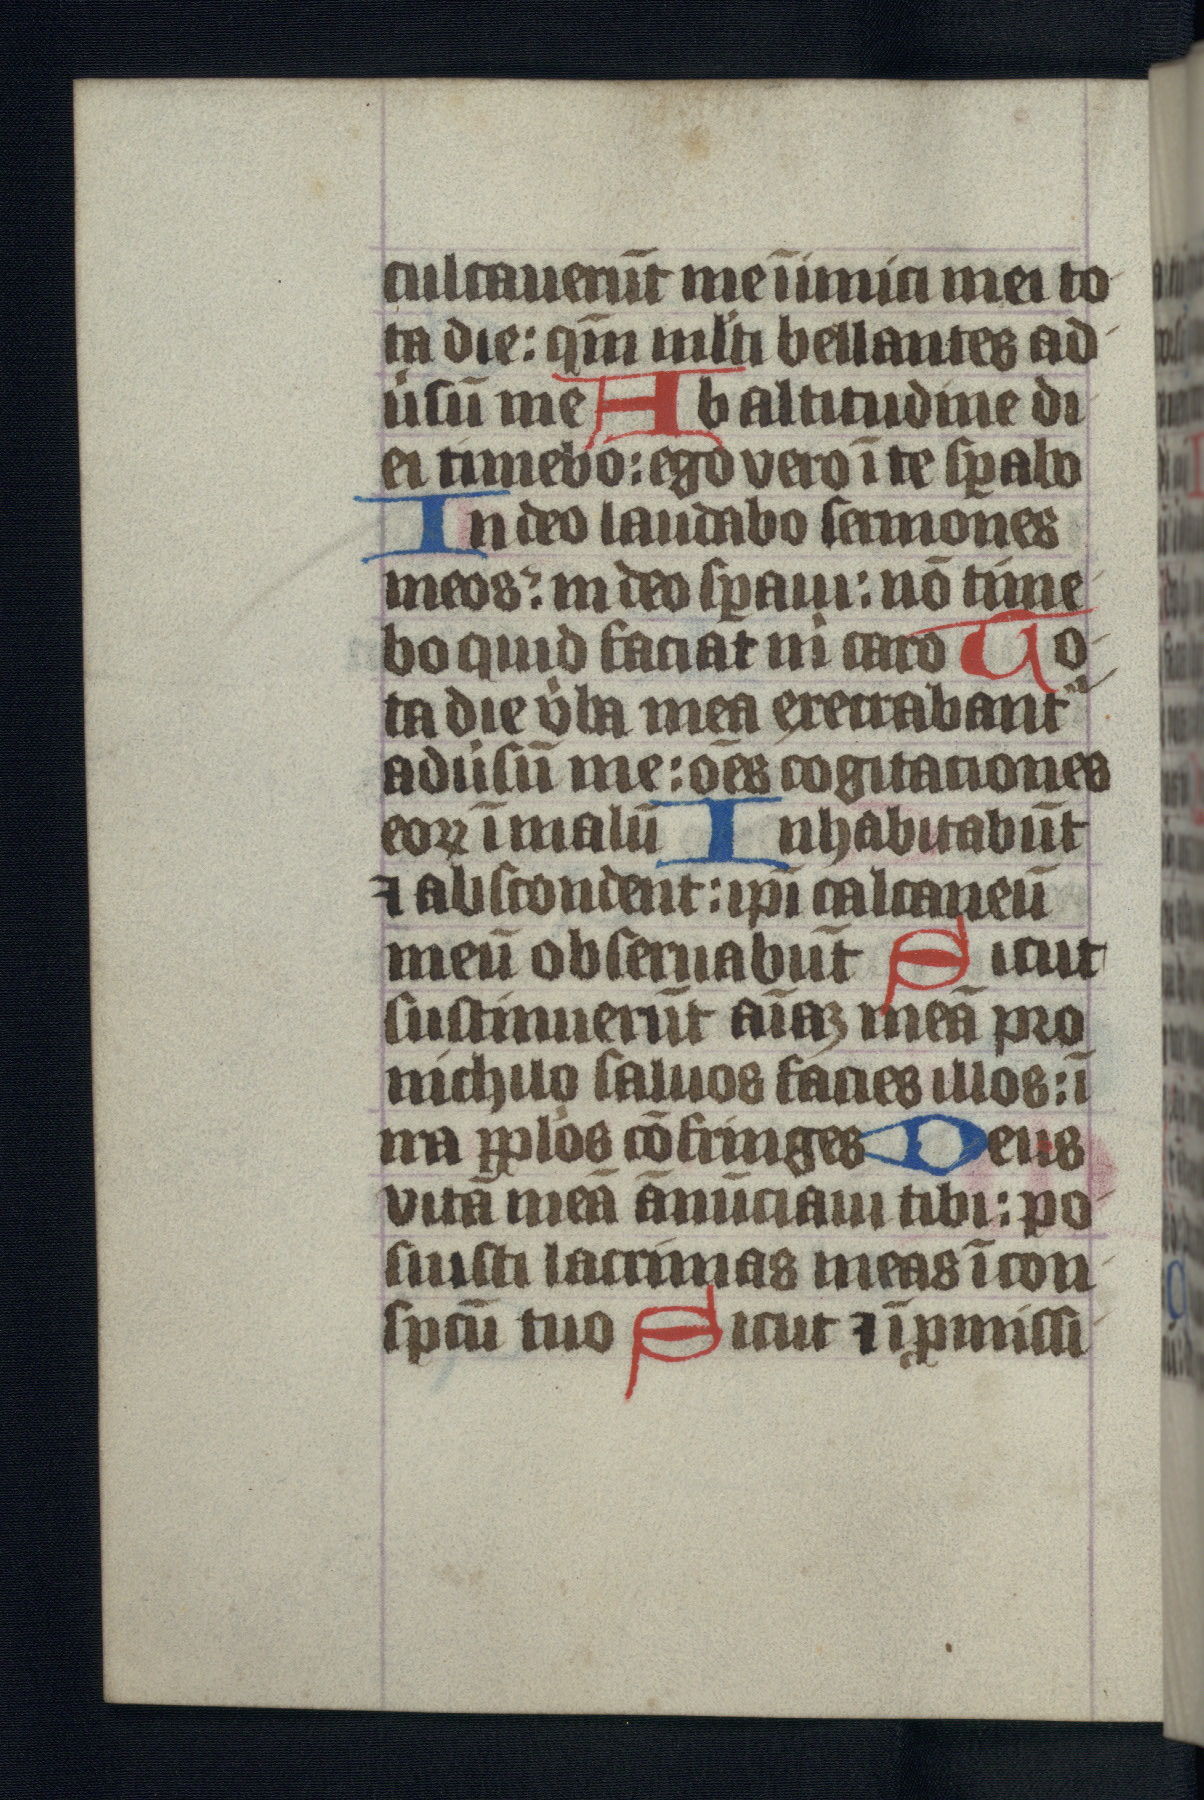 culcauerūt me īimici mei to
ta die: qm̄ ml'ti bellantes ad
u'sū me Ab altitudine di
ei timebo: ego vero ī te sꝑabo
In deo laudabo sermones
meos: in deo sꝑaui: nō time
bo quid faciat m̄ caro To
ta die v'ba mea execrabant᷑
adu'sū me: oēs cogitationes
eoꝝ ī malū Inhabitabūt
⁊ abscondent: ip̄i calcaneū
meū obseruabūt Sicut
sustinuerūt aīaꝫ meā pro
nichilo saluos facies illos: ī
ira pp̄los cōfringes Deus
vitā meā ānūciaui tibi: po
suisti lacrimas meas ī con
spcū tuo Sicut ⁊ ī ꝓmissi